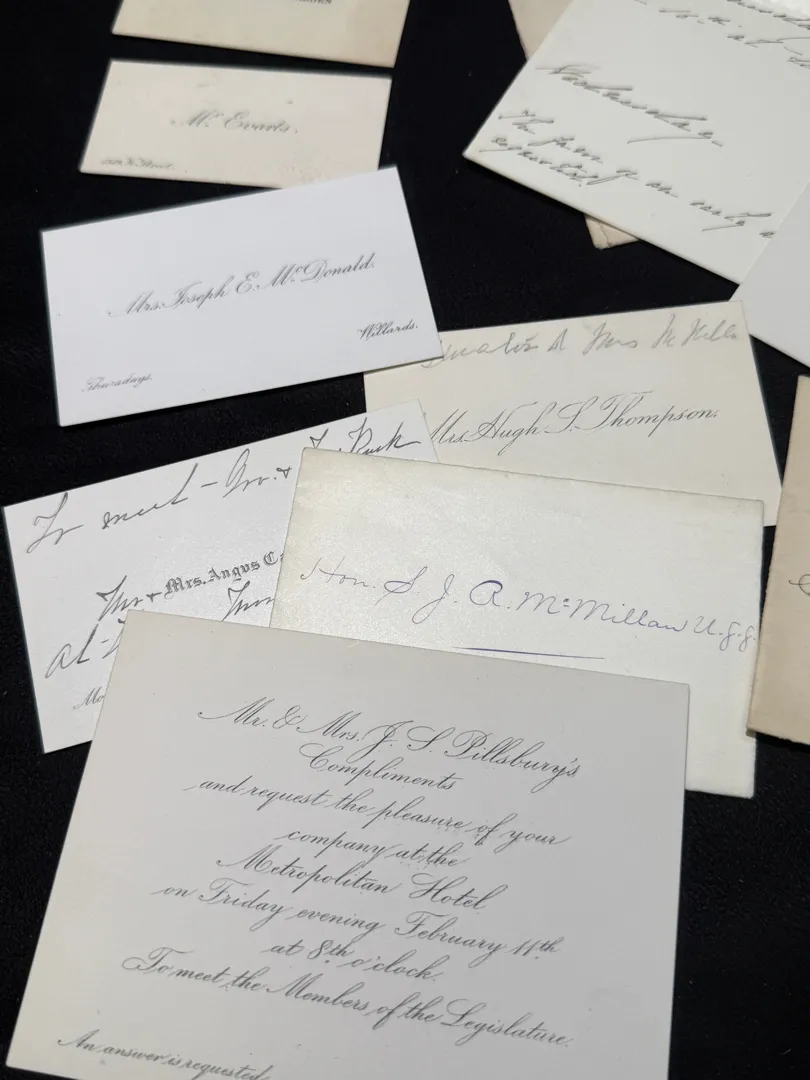 Mr. Evarts.
Mrs. Joseph E. McDonald.
Willards.
Thursdays.
Wednesday.
of an early
requested.
Mrs McMillan
Mrs. Hugh S. Thompson.
To meet -
Mrs. Angus
Hon. S. J. R. McMillan U.S.S.
Mr. & Mrs. J. S. Pillsbury's
Compliments
and request the pleasure of your
company at the
Metropolitan Hotel
on Friday evening February 11th
at 8th o'clock.
To meet the Members of the Legislature.
An answer is requested